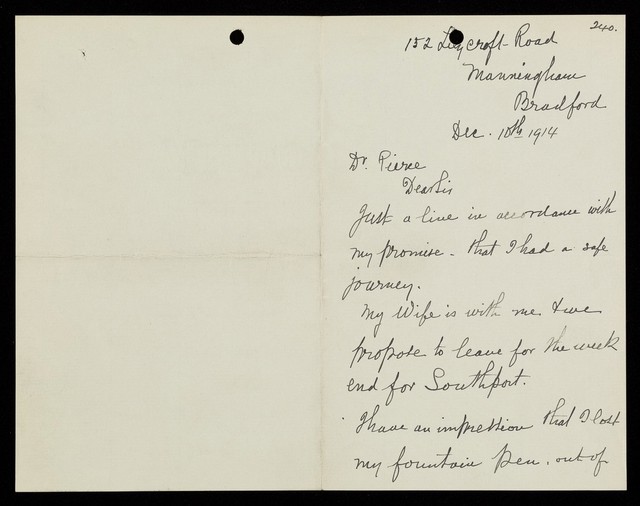 240.
152 Leycroft Road
Manningham
Bradford
Dec. 10th 1914
Dr. Pierce
Dear Sir
Just a line in accordance with
my promise - that I had a safe
journey.
My Wife is with me & we
propose to leave for the week
end for Southport.
I have an impression that I lost
my fountain pen, out of